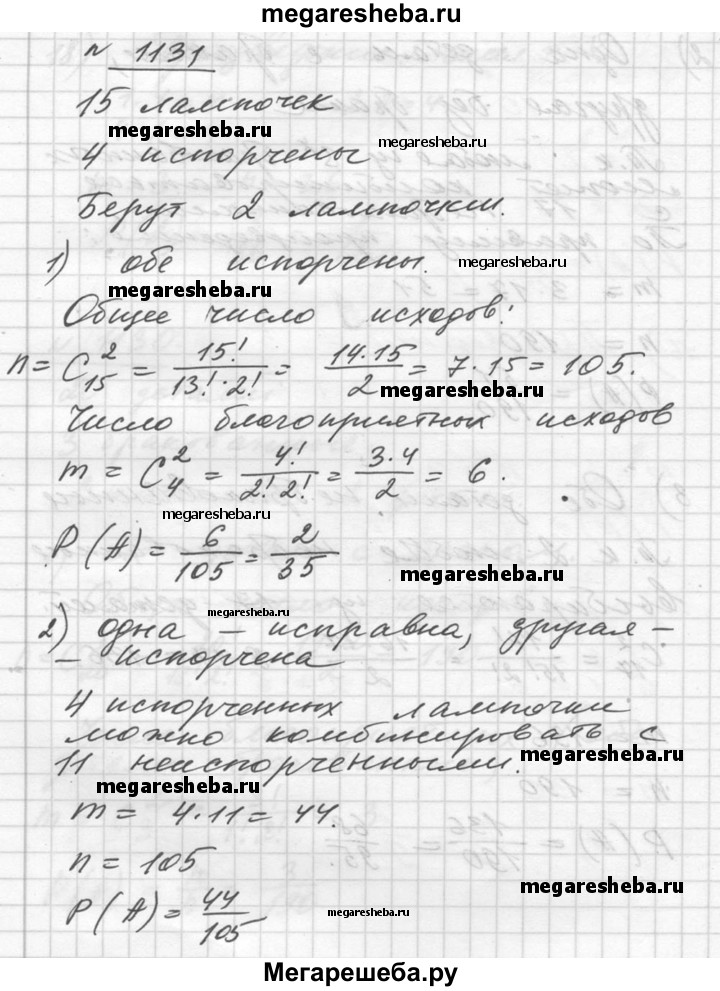 megaresheba.ru
№ 1131
15 лампочек
megaresheba.ru
4 испорчены megaresheba.ru
Берут 2 лампочки.
1) обе испорчены. megaresheba.ru
megaresheba.ru
Общее число исходов:
n = C₁₅² = 15!/(13!·2!) = 14·15/2 = 7·15 = 105.
megaresheba.ru
Число благоприятных исходов
m = C₄² = 4!/(2!·2!) = 3·4/2 = 6.
megaresheba.ru
P(A) = 6/105 = 2/35
megaresheba.ru
megaresheba.ru
2) одна – исправна, другая –
– испорчена
4 испорченных лампочки
можно комбинировать с
megaresheba.ru
11 неиспорченными.
megaresheba.ru
m = 4·11 = 44.
n = 105
megaresheba.ru
P(A) = 44/105
megaresheba.ru
megaresheba.ru
Мегарешеба.ру